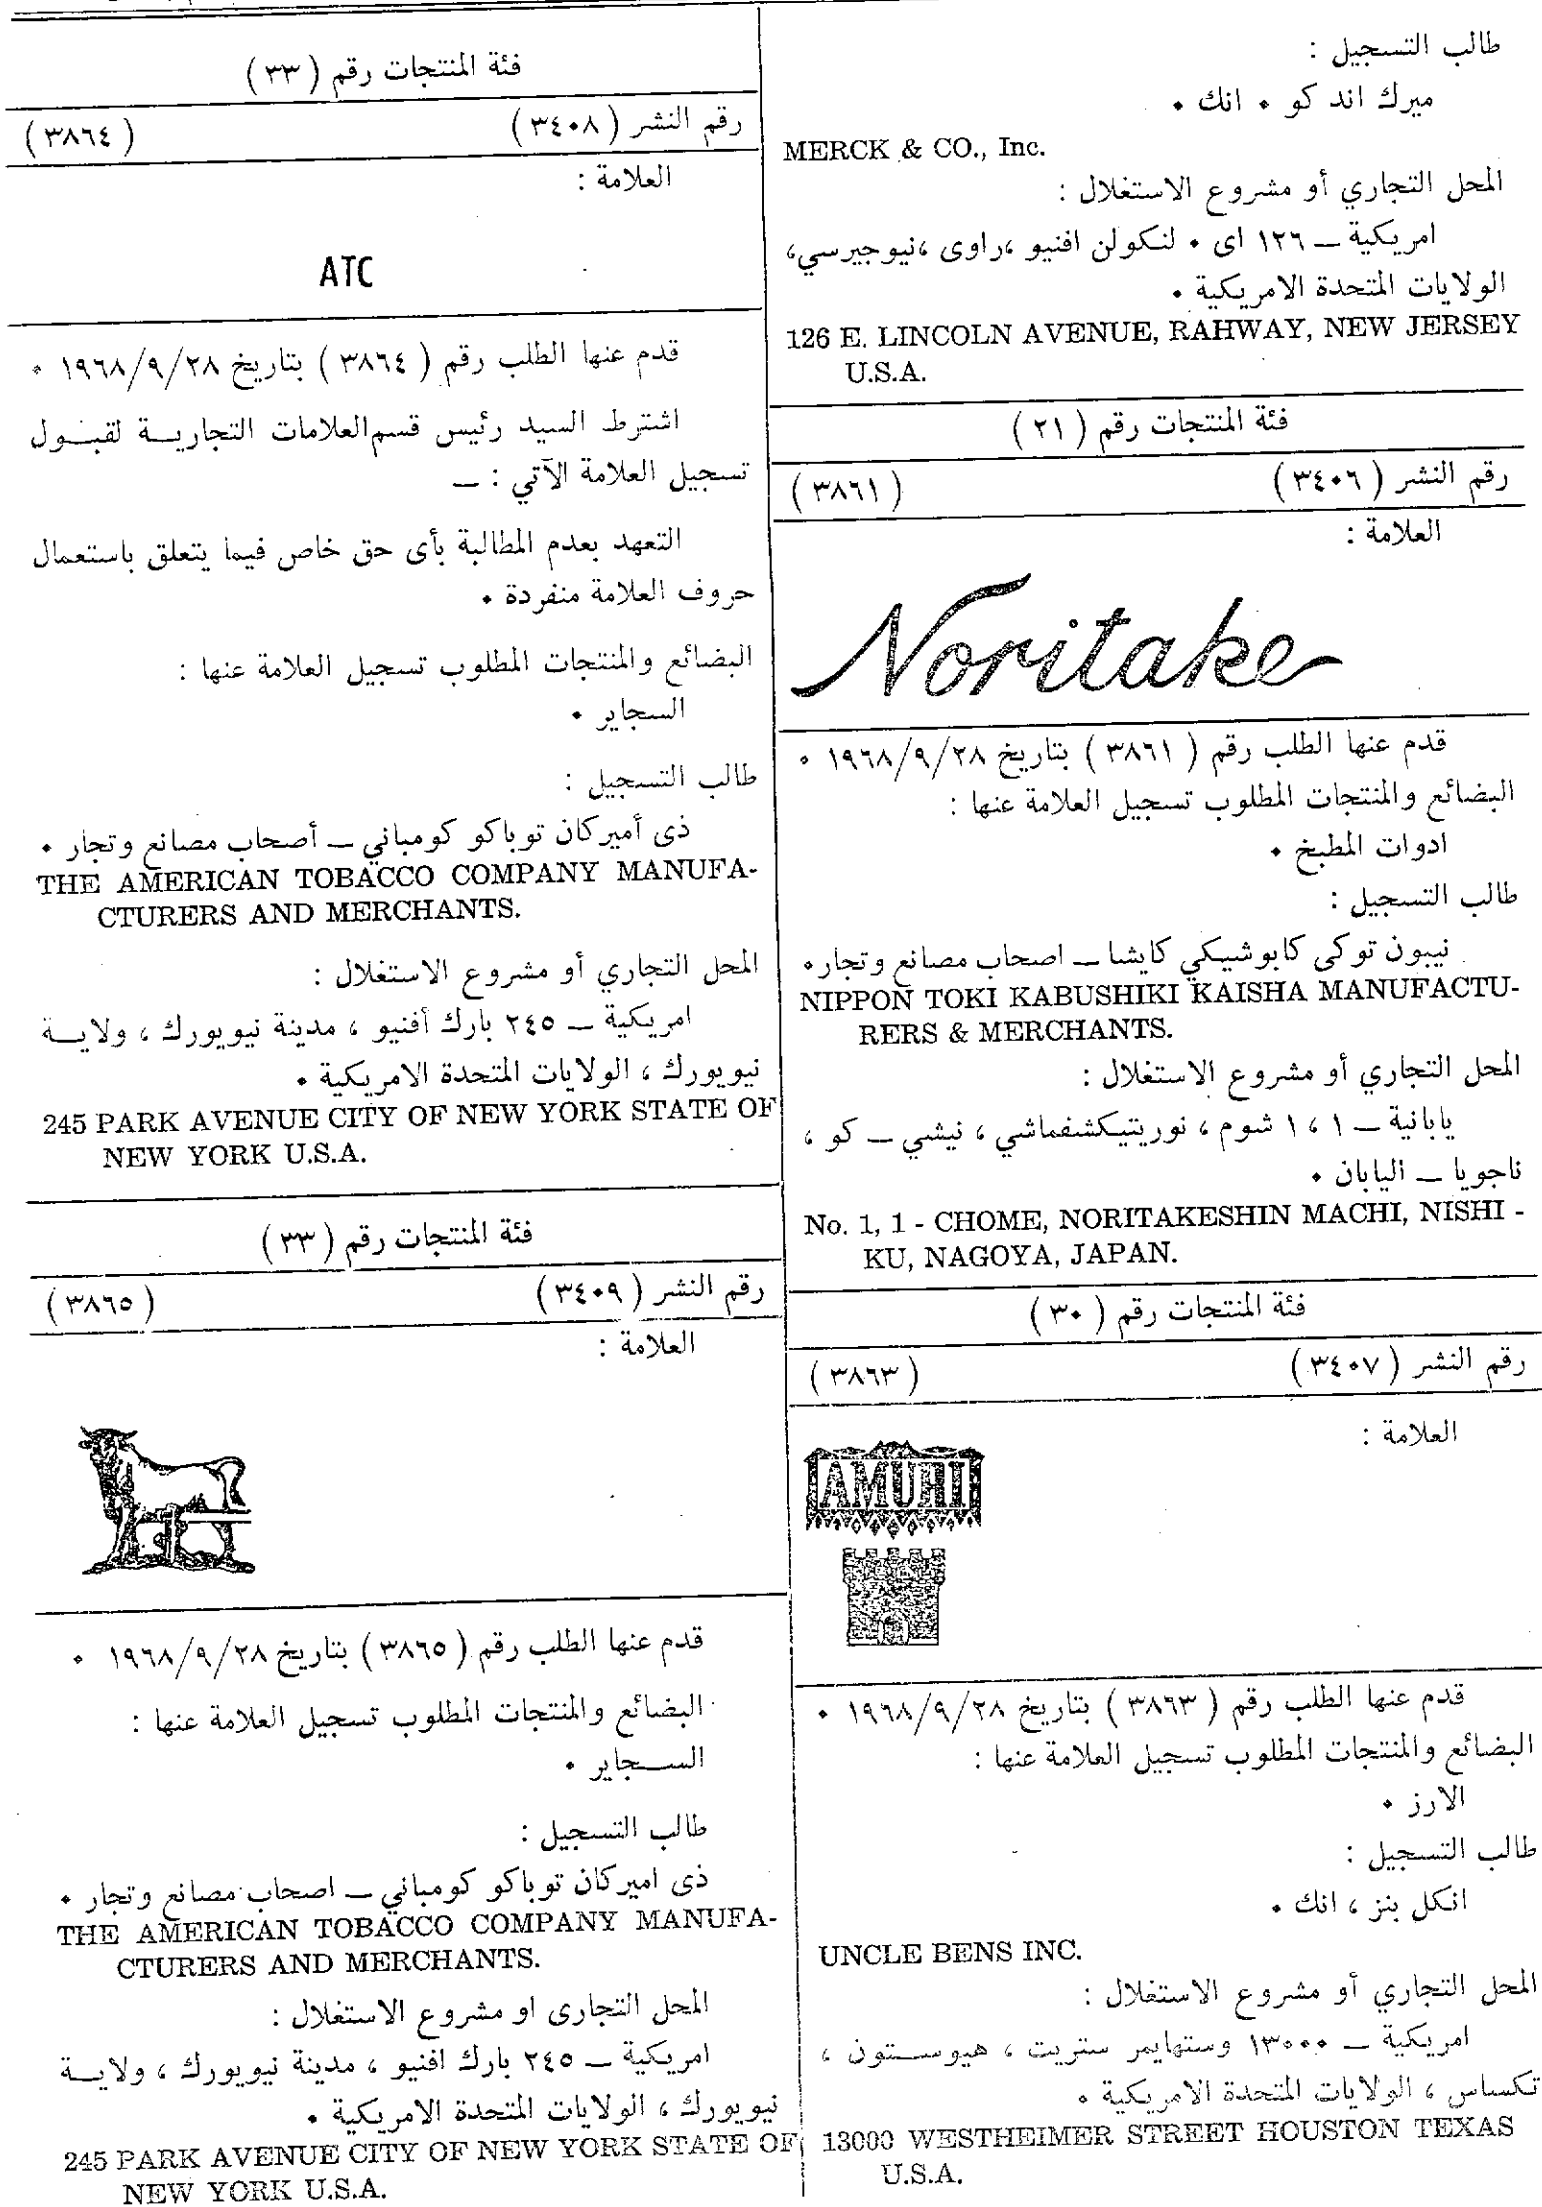 طالب التسجيل :
ميرك اند كو ٠ انك ٠
MERCK & CO., Inc.
المحل التجاري أو مشروع الاستغلال :
امريكية ــ ١٢٦ اى ٠ لنكولن افنيو ،راوى ،نيوجيرسي،
الولايات المتحدة الامريكية ٠
126 E. LINCOLN AVENUE, RAHWAY, NEW JERSEY
U.S.A.
فئة المنتجات رقم ( ٢١ )
رقم النشر ( ٣٤٠٦ ) ( ٣٨٦١ )
العلامة :
Noritake
قدم عنها الطلب رقم ( ٣٨٦١ ) بتاريخ ١٩٦٨/٩/٢٨ ٠
البضائع والمنتجات المطلوب تسجيل العلامة عنها :
ادوات المطبخ ٠
طالب التسجيل :
نيبون توكى كابوشيكي كايشا ــ اصحاب مصانع وتجار٠
NIPPON TOKI KABUSHIKI KAISHA MANUFACTU-
RERS & MERCHANTS.
المحل التجاري أو مشروع الاستغلال :
يابانية ــ ١ ، ١ شوم ، نوريتيكشفماشي ، نيشي ــ كو ،
ناجويا ــ اليابان ٠
No. 1, 1 - CHOME, NORITAKESHIN MACHI, NISHI -
KU, NAGOYA, JAPAN.
فئة المنتجات رقم ( ٣٠ )
رقم النشر ( ٣٤٠٧ ) ( ٣٨٦٣ )
العلامة :
قدم عنها الطلب رقم ( ٣٨٦٣ ) بتاريخ ١٩٦٨/٩/٢٨ ٠
البضائع والمنتجات المطلوب تسجيل العلامة عنها :
الارز ٠
طالب التسجيل :
انكل بنز ، انك ٠
UNCLE BENS INC.
المحل التجاري أو مشروع الاستغلال :
امريكية ــ ١٣٠٠٠ وستهايمر ستريت ، هيوســتون ،
تكساس ، الولايات المتحدة الامريكية ٠
13000 WESTHEIMER STREET HOUSTON TEXAS
U.S.A.
فئة المنتجات رقم ( ٣٣ )
رقم النشر ( ٣٤٠٨ ) ( ٣٨٦٤ )
العلامة :
ATC
قدم عنها الطلب رقم ( ٣٨٦٤ ) بتاريخ ١٩٦٨/٩/٢٨ ٠
اشترط السيد رئيس قسم العلامات التجاريــة لقبــول
تسجيل العلامة الآتي : ــ
التعهد بعدم المطالبة بأى حق خاص فيما يتعلق باستعمال
حروف العلامة منفردة ٠
البضائع والمنتجات المطلوب تسجيل العلامة عنها :
السجاير ٠
طالب التسجيل :
ذى أميركان توباكو كومباني ــ أصحاب مصانع وتجار ٠
THE AMERICAN TOBACCO COMPANY MANUFA-
CTURERS AND MERCHANTS.
المحل التجاري أو مشروع الاستغلال :
امريكية ــ ٢٤٥ بارك أفنيو ، مدينة نيويورك ، ولايــة
نيويورك ، الولايات المتحدة الامريكية ٠
245 PARK AVENUE CITY OF NEW YORK STATE OF
NEW YORK U.S.A.
فئة المنتجات رقم ( ٣٣ )
رقم النشر ( ٣٤٠٩ ) ( ٣٨٦٥ )
العلامة :
قدم عنها الطلب رقم ( ٣٨٦٥ ) بتاريخ ١٩٦٨/٩/٢٨ ٠
البضائع والمنتجات المطلوب تسجيل العلامة عنها :
الســجاير ٠
طالب التسجيل :
ذى اميركان توباكو كومباني ــ اصحاب مصانع وتجار ٠
THE AMERICAN TOBACCO COMPANY MANUFA-
CTURERS AND MERCHANTS.
المحل التجارى او مشروع الاستغلال :
امريكية ــ ٢٤٥ بارك افنيو ، مدينة نيويورك ، ولايــة
نيويورك ، الولايات المتحدة الامريكية ٠
245 PARK AVENUE CITY OF NEW YORK STATE OF
NEW YORK U.S.A.